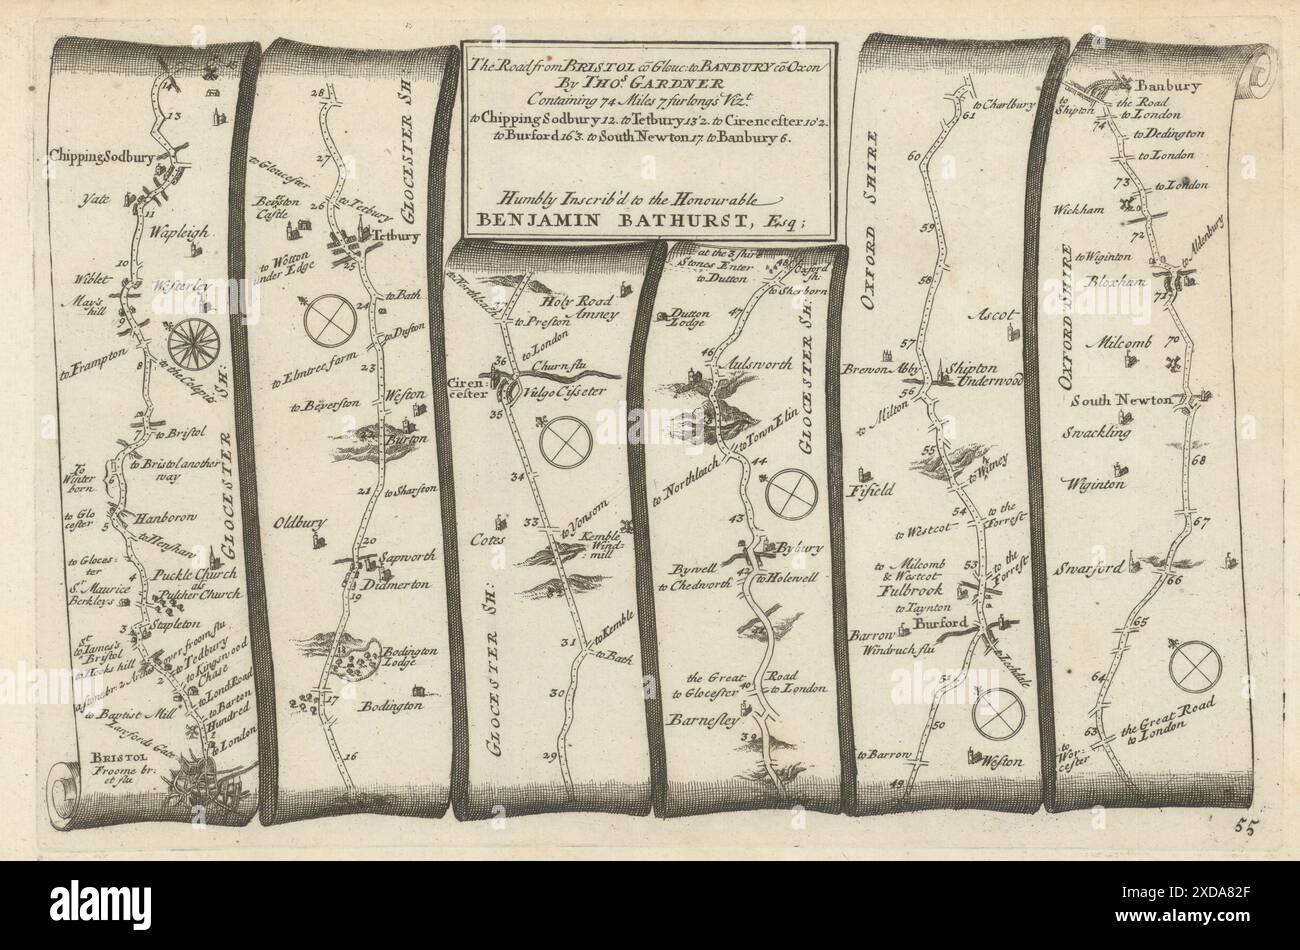 The Road from BRISTOL cõ Glouc: to BANBURY cõ Oxon
By THOS. GARDNER
Containing 74 Miles 7 furlongs Vizt
to Chipping Sodbury 12. to Tetbury 13'2. to Cirencester 10'2.
to Burford 16'3. to South Newton 17. to Banbury 6.
Humbly Inscrib'd to the Honourable
BENJAMIN BATHURST, Esq;
13
Chipping Sodbury
Yate
11
Wapleigh
10
Wiblet
Westerley
May's
hill
9
to Frampton
8
to the Colepits
GLOCESTER SH:
7
to Bristol
to Bristol another
way
To
Winter
born
6
to Glo
cester
5
Hanborow
to Henshan
to Gloces-
ter
4
Puckle Church
als
Pulcher Church
St Maurice
Berkleys
3
Stapleton
St
James's
to Bristol
to Hooks hill
to Tedbury
to Kingswood
Chase
to Lond Road
to Barton
Hundred
to Baptist Mill
Lawfords Gate
to London
BRISTOL
Froome br:
et flu
28
GLOCESTER SH:
27
to Gloucester
26
to Tetbury
Beverston
Castle
Tetbury
to Wotton
under Edge
25
to Bath
24
to Duston
to Elmtree farm
23
to Beverston
Weston
Burton
21
to Sharston
20
Oldbury
Sapworth
Didmerton
19
18
Bodington
Lodge
17
Bodington
16
to Northleach
Holy Road
Amney
to Preston
to London
36
Churn flu
Ciren-
cester
Vulgo Cisseter
35
34
33
to Yonsom
Cotes
Kemble
Wind-
mill
GLOCESTER SH:
31
to Kemble
to Bath
30
29
at the 3 shire
Stones Enter
to Dutton
48
Oxford
sh.
to Sherborn
Dutton
Lodge
47
46
Aulsworth
GLOCESTER SH:
to Town Elin
to Northleach
44
43
Bybury
Bywell
to Chedworth
42
to Holewell
the Great
to Glocester
40
Road
to London
Barnesley
39
to Charlbury
61
60
OXFORD SHIRE
59
58
Ascot
57
Brewon Abby
Shipton
Underwood
56
to Milton
55
to Witney
Fifield
to Westcot
54
to the
Forrest
to Milcomb
& Westcot
53
to the
Forrest
Fulbrook
to Taynton
Burford
Barrow
Windruch flu
to Lechdale
51
50
to Barrow
Weston
49
Banbury
to
Shipton
the Road
to London
74
to Dedington
to London
73
to London
Wickham
72
to Aldenbury
to Wiginton
Bloxham
71
OXFORD SHIRE
70
Milcomb
South Newton
Swackling
68
Wiginton
67
Swarford
66
65
64
the Great Road
to London
63
to
Wor-
cester
55
alamy
Image ID: 2XDA82F
www.alamy.com